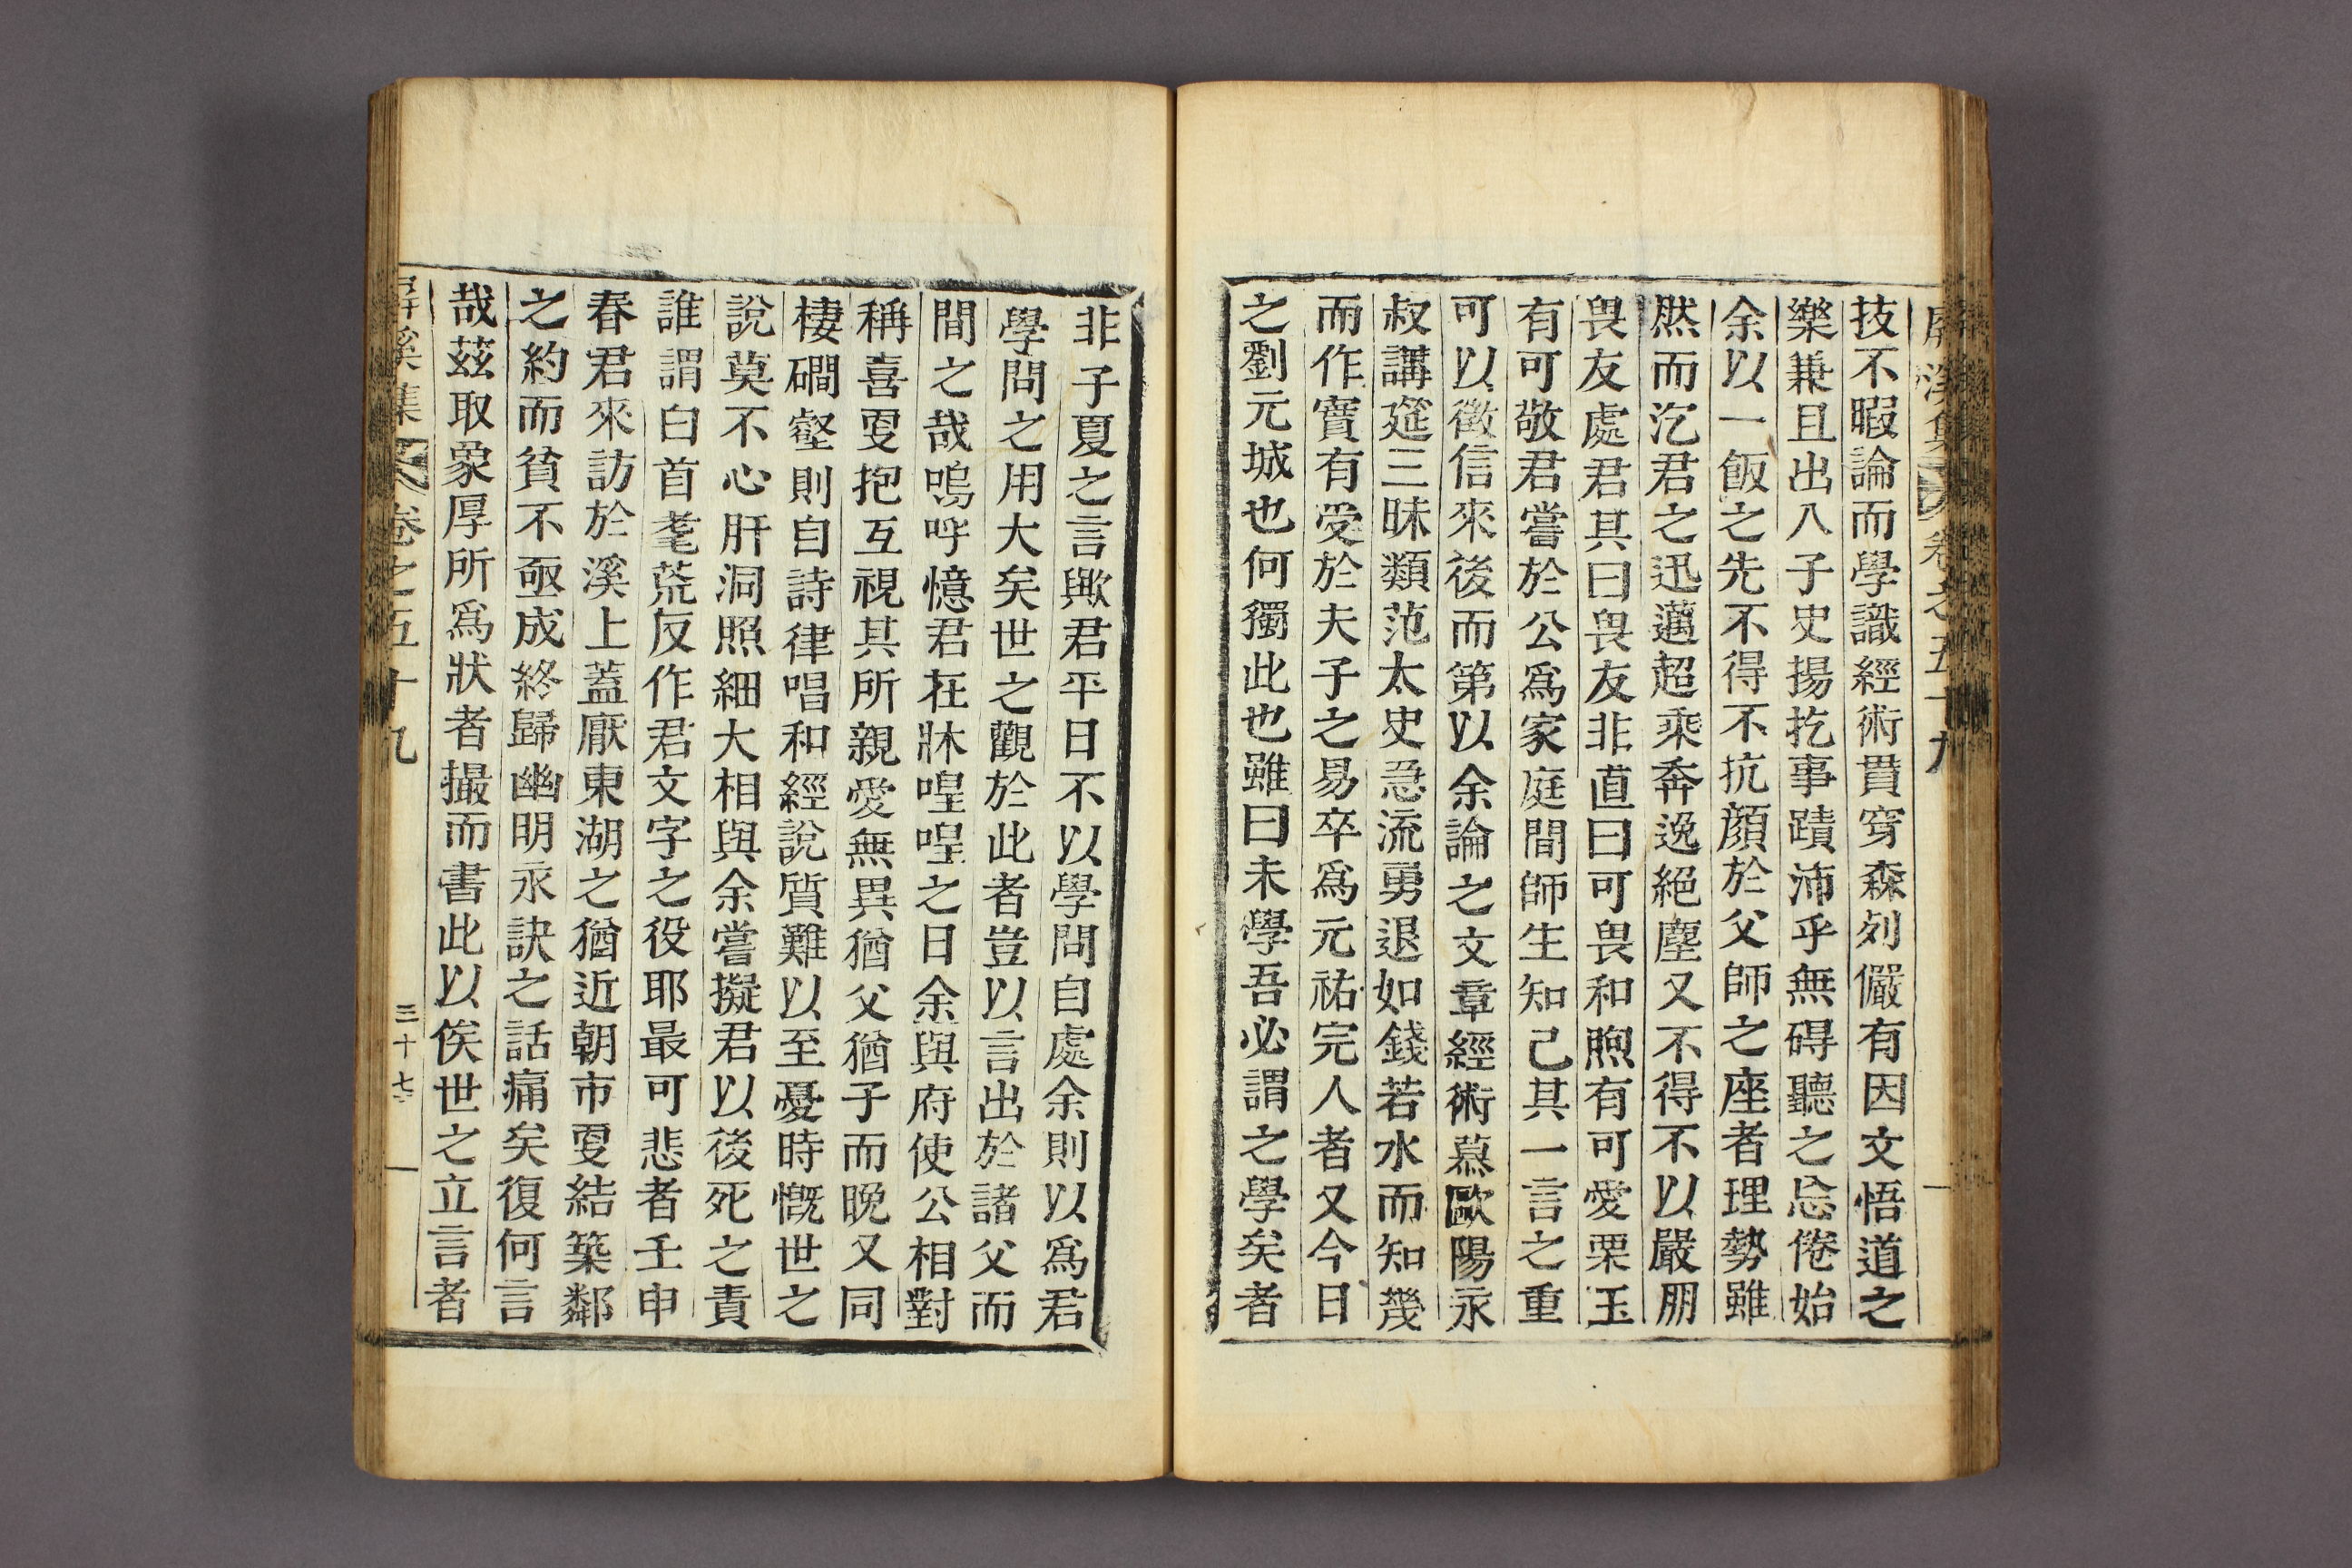 屛溪集 卷之五十九
技不暇論而學識經術貫穿森列儼有因文悟道之
樂兼且出入子史揚扢事蹟沛乎無碍聽之忘倦始
余以一飯之先不得不抗顔於父師之座者理勢雖
然而汔君之迅邁超乘奔逸絕塵又不得不以嚴朋
畏友處君其曰畏友非直曰可畏和煦有可愛栗玉
有可敬君嘗於公爲家庭間師生知己其一言之重
可以徵信來後而第以余論之文章經術慕歐陽永
叔講筵三昧類范太史急流勇退如錢若水而知幾
而作實有受於夫子之易卒爲元祐完人者又今日
之劉元城也何獨此也雖曰未學吾必謂之學矣者
非子夏之言歟君平日不以學問自處余則以爲君
學問之用大矣世之觀於此者豈以言出於諸父而
間之哉嗚呼憶君在牀喤喤之日余與府使公相對
稱喜更抱互視其所親愛無異猶父猶子而晩又同
棲磵壑則自詩律唱和經說質難以至憂時慨世之
說莫不心肝洞照細大相與余嘗擬君以後死之責
誰謂白首耄荒反作君文字之役耶最可悲者壬申
春君來訪於溪上蓋厭東湖之猶近朝市更結築鄰
之約而貧不亟成終歸幽明永訣之話痛矣復何言
哉玆取象厚所爲狀者撮而書此以俟世之立言者
屛溪集 卷之五十九 三十七